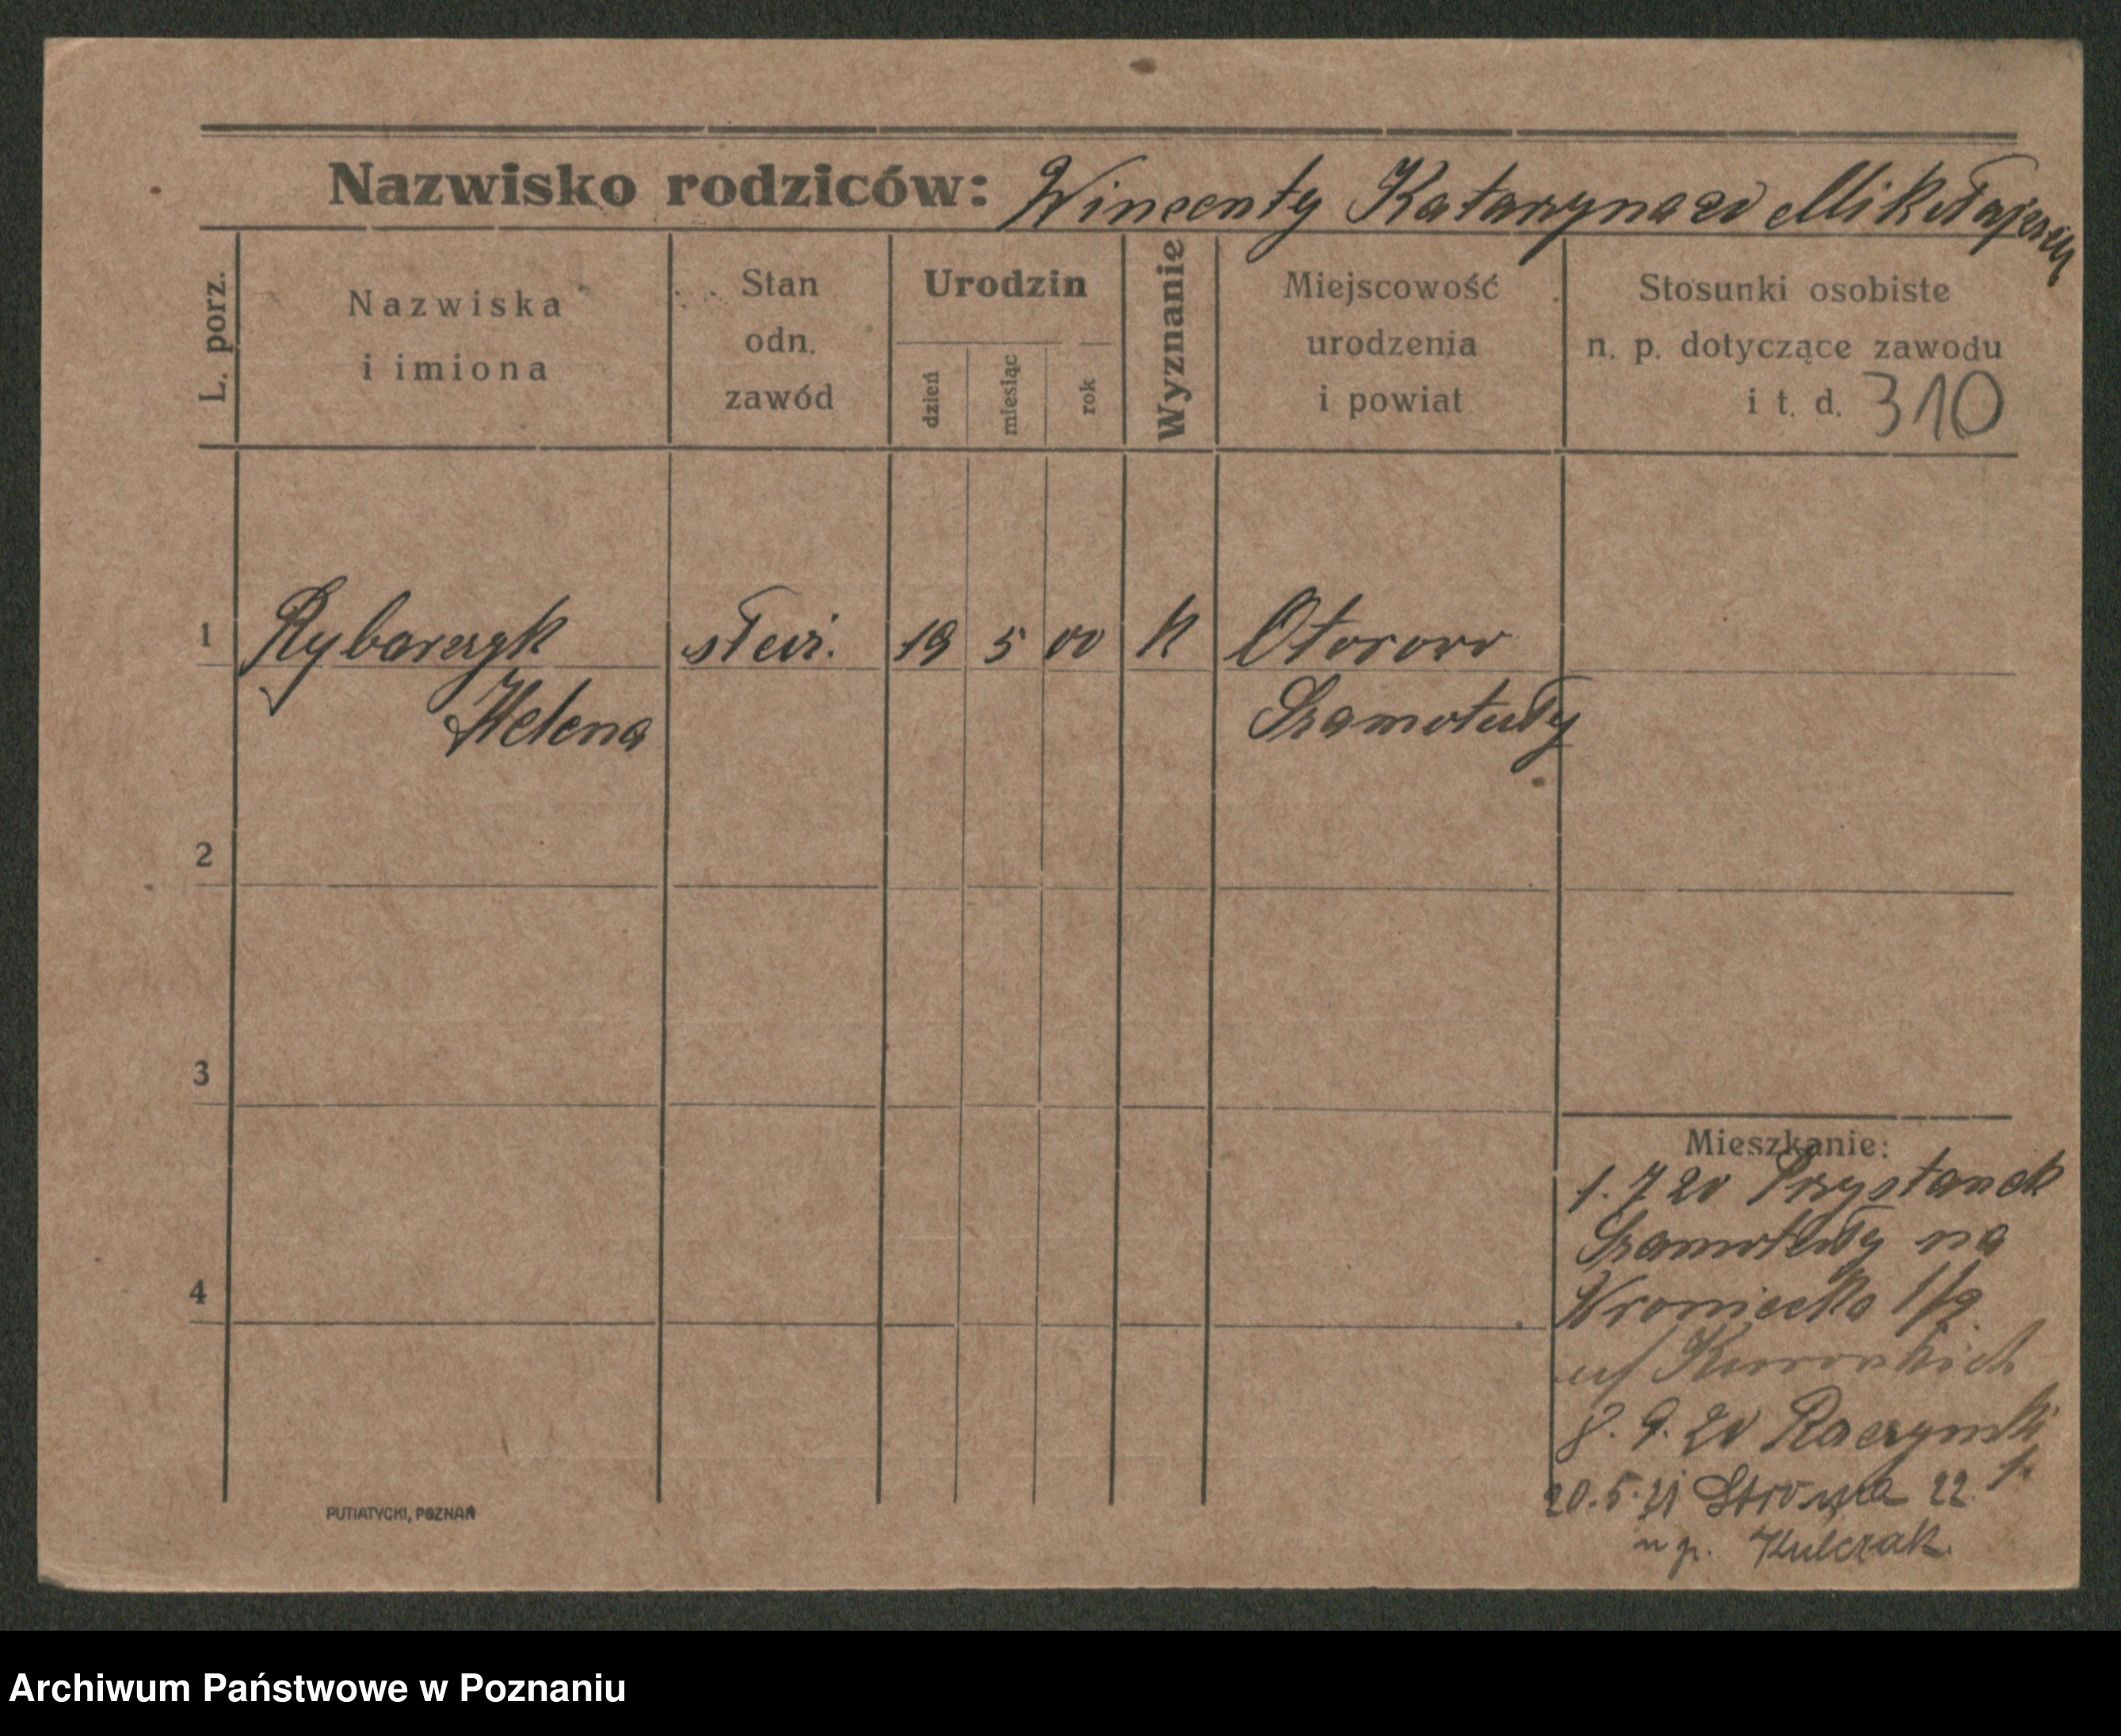 Nazwisko rodziców: Wincenty Katarzyna zd Mikołajczak
L. porz.
Nazwiska
i imiona
Stan
odn.
zawód
Urodzin
dzień
miesiąc
rok
Wyznanie
Miejscowość
urodzenia
i powiat
Stosunki osobiste
n. p. dotyczące zawodu
i t. d. 310
1 Rybarczyk 19 5 00 K Otorowo
Helena Szamotuły
2
3
4
Mieszkanie:
1. 7 20 Przystanek
Szamotuły na
Wroniecka 1/2
8. 9. 20 Raczynski
20. 5. 21 Stroma 22
Kulczak
PUTIATYCKI, POZNAŃ
Archiwum Państwowe w Poznaniu